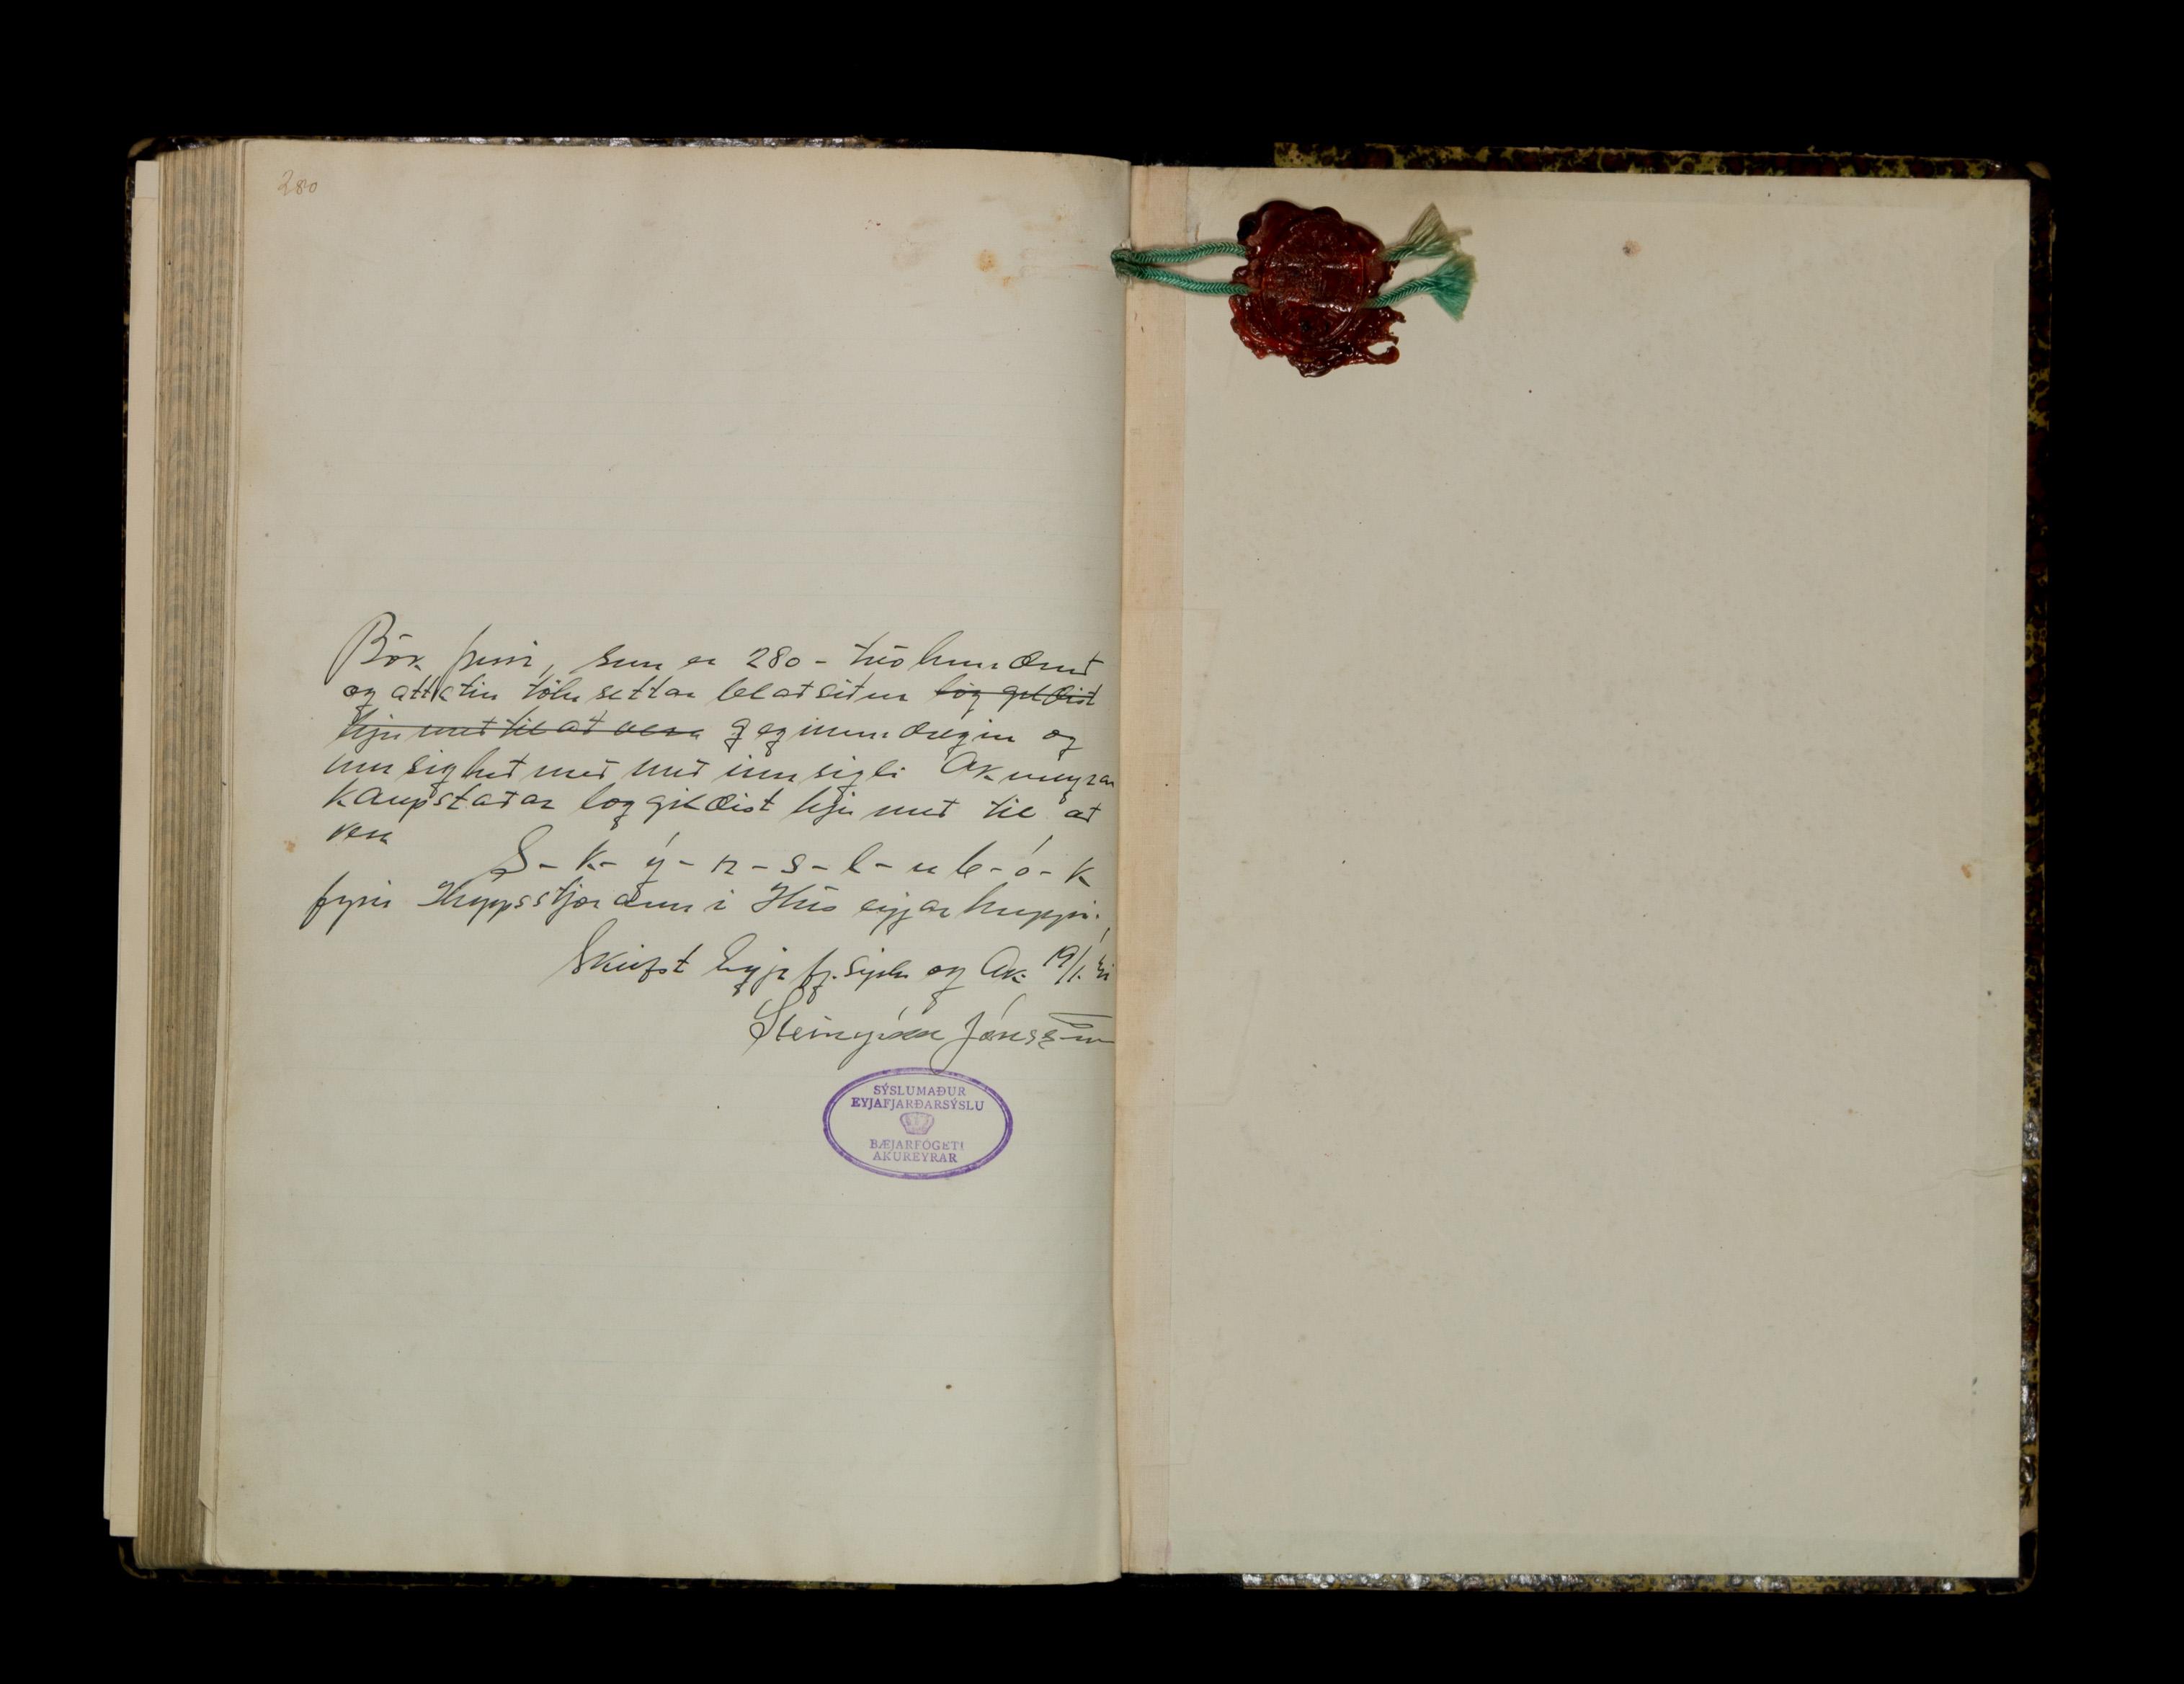 280
Bók þessi, sem er 280 - tvö hundruð
og áttatíu tölusettar blaðsíður löggildist
hjer með til að vera gegnumdregin og
innsigluð með mínu innsigli Akureyrar
kaupstaðar löggildist hjer með til að
vera
S - k - ý - r - s - l - u b - ó - k
fyrir Hreppsstjórann í Hríseyjarhreppi.
Skrifst Eyjafj.sýslu og Ak. 19/1.
Steingrímur Jónsson
SÝSLUMAÐUR
EYJAFJARÐARSÝSLU
BÆJARFÓGETI
AKUREYRAR